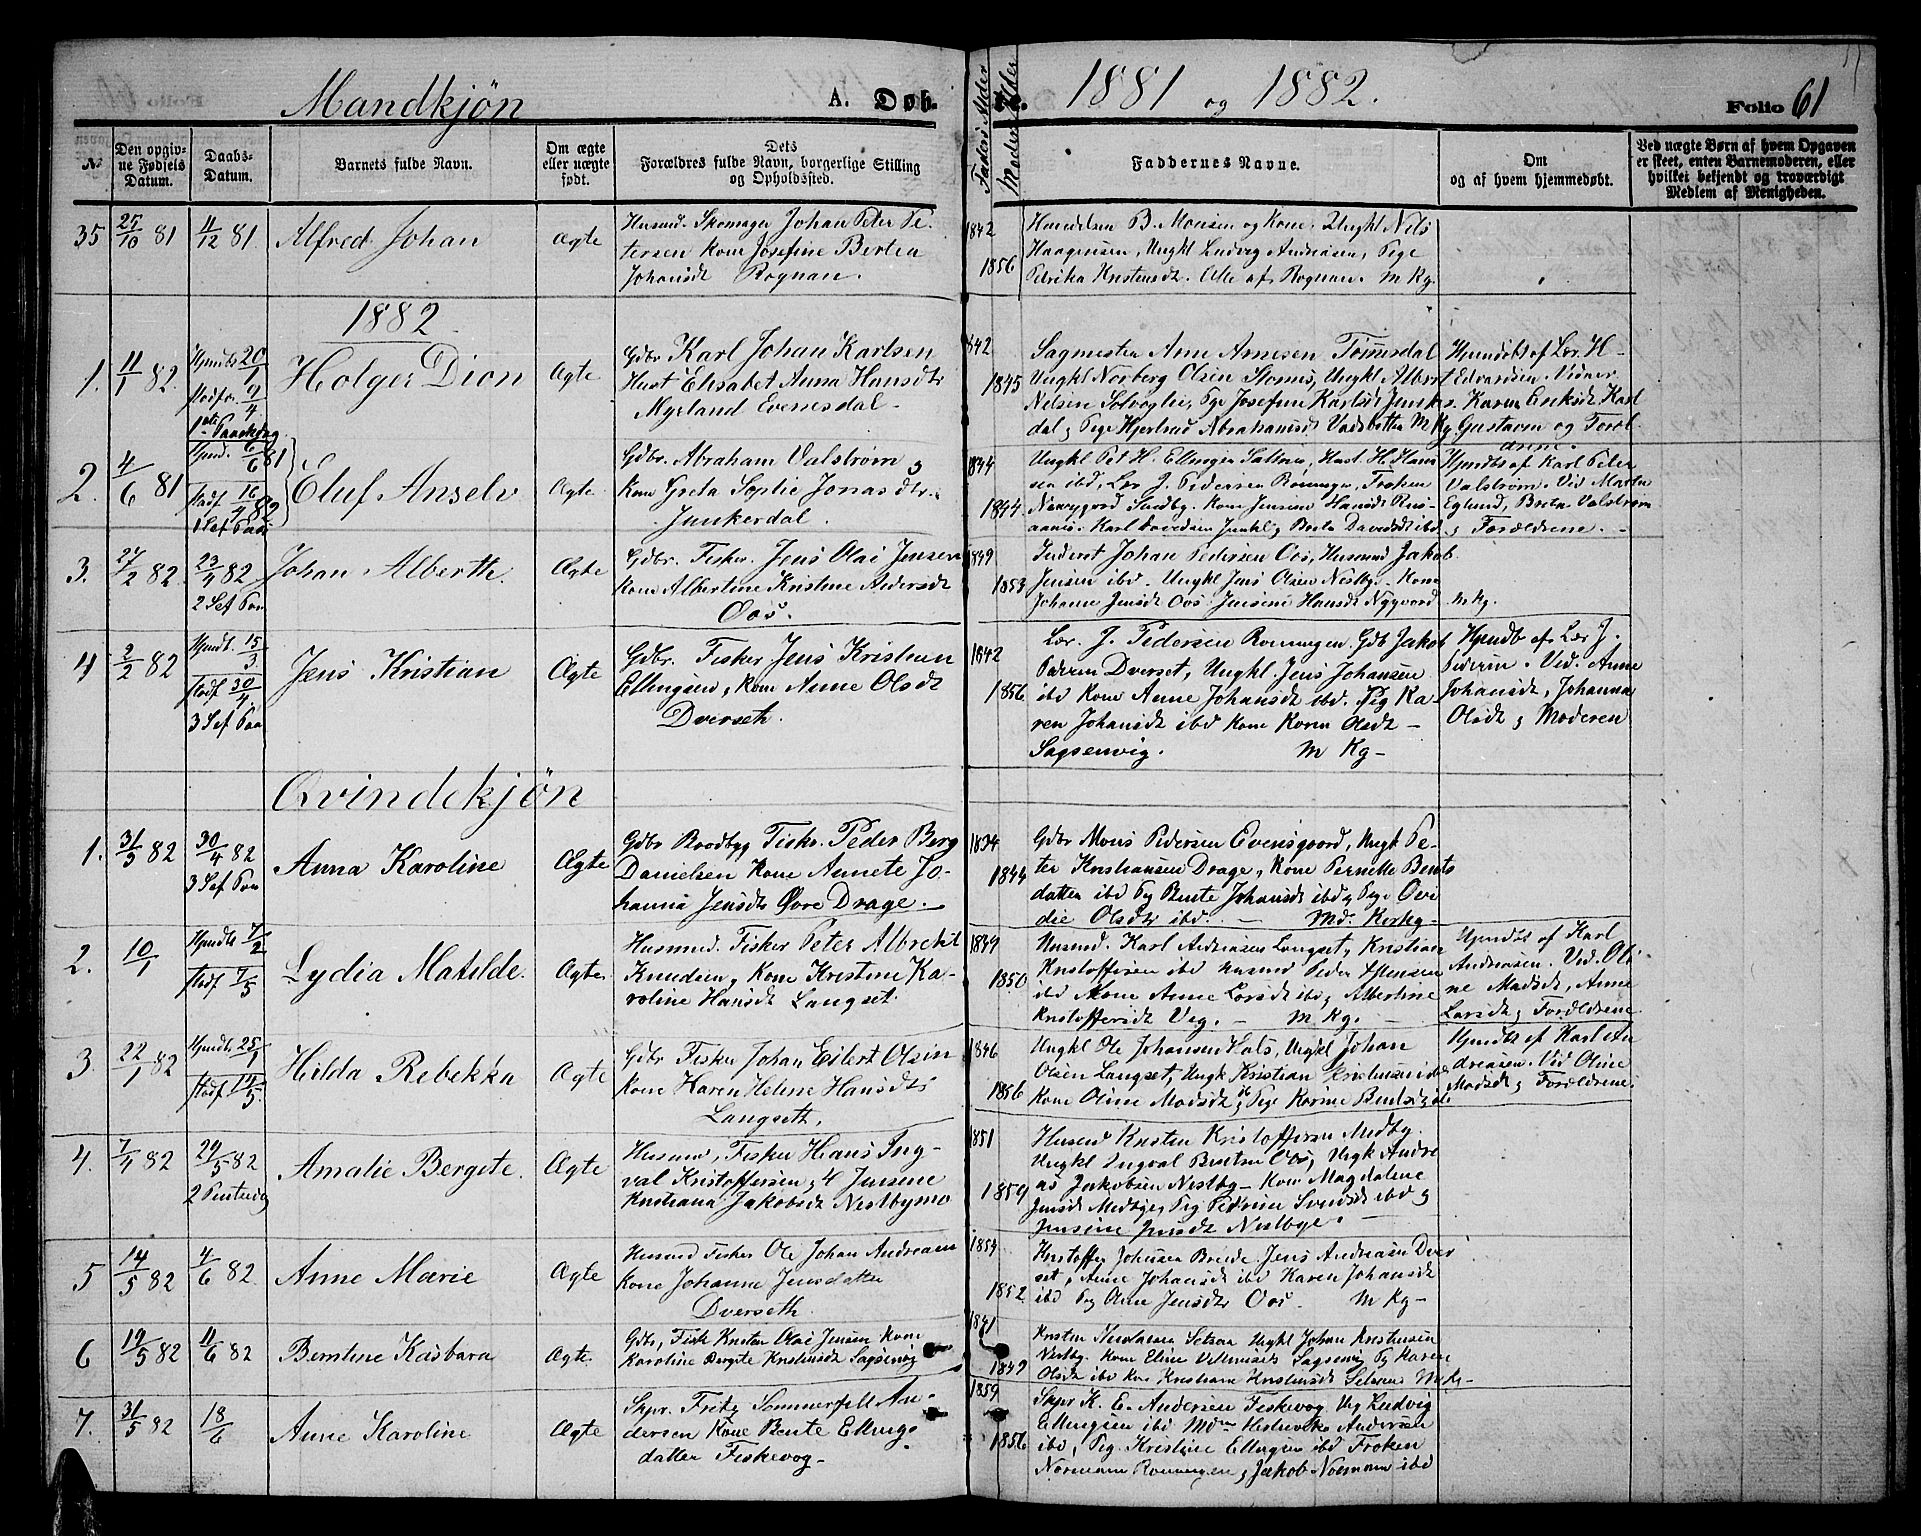 Mandkjøn
A. Døb-
te.
1881 og 1882.
Folio 61
№
Den opgiv-
ne Fødsels
Datum.
Daabs-
Datum.
Barnets fulde Navn.
Om ægte
eller uægte
født.
Dets
Forældres fulde Navn, borgerlige Stilling
og Opholdssted.
Faders Alder
Moders Alder
Faddernes Navne.
Om
og af hvem hjemmedøbt.
Ved uægte Børn af hvem Opgaven
er skeet, enten Barnemoderen, eller
hvilket bekjendt og troværdigt
Medlem af Menigheden.
35 25/10 81 11/12 81. Alfred Johan Ægte
Husmd. Skomager Johan Peter Pe-
tersen Kone Josefine Bertea
Johansdt Rognan.
1842
1856
B. Monsen og Kone. Ungkl Nils
Haagensen, Ungkl Ludvig Andreasen, Pige
Petrika Kristensdt. Alle af Rognan. M Kg.
1882
1. 11/1 82. Hjmdbt 20/1 Stadf. 9/4 1ste Paaskdag Holger Dion Ægte
Gdbr Karl Johan Karlsen
Hust Elisabet Anna Hansdtr
Myrland Evenesdal -
1842
1845
Sagmester Arne Arnesen Tømesdal
Ungkl Norberg Olsen Storms, Ungkl Albert
Nelsen Solvoglie, Pge Josefine Karlsdt Junker-
dal og Pige Hjertrud Abrahamsdt Vadsbotten M Kg.
Hjemdøbt af Lær. H-
Edvardsen. Vidner
Karen Eriksdt Karl
Gustavn og Foræl-
drene.
2. 4/6 81 Hjmd. 6/6 81 Stadf 16/4 82 1 Søf Paa Eluf Anselv Ægte
Gdbr. Abraham Valstrøm og
Kone Greta Sophie Jonasdtr.
Junkerdal.
1844
1844.
Ungkl Pet H. Ellingsen Saltnes, Hust. H. Hans
ibd, Lær J. Pedersen Ronningen, Fosken
Nævygord Sandby. Kone Jensine Hansdt Rus-
aanes. Karl Davidsen Junkl og Berta Davidsdt ibd
Hjmdbt af Karl Peter
Valstrøm. Vid Marta
Eglund, Brita Valstrøm
og Forældrene. -
3. 27/2 82. 23/4 82 2 Søf Paa Johan Alberth Ægte
Gdbr. Fisker. Jens Olai Jensen
Kone Albertine Kristine Andersdt
Oos.
1849
1853
Inderst Johan Pedersen Oos, Husmnd Jakob
Jensen ibd. Ungkl Jens Olsen Nestby. Kone
Johanne Jensdt Oos. Jensine Hansdt Nygaard M Kg.
4 2/2 82 Hjmdt. 15/3 Stadf 30/4. 3 Søf Paa Jens Kristian Ægte
Gdbr. Fisker Jens Kristian
Ellingsen, Kone Anne Olsdt
Dverseth.
1842
1856
Lær. J. Pedersen Ronningen. Gdb Jakob
Pedersen Dverset, Ungkl. Jens Johansen
ibd Kone Anne Johansdt ibd. Pig Ka-
ren Johansdt ibd Kone Karen Olsdt -
Sagsenvig. M Kg -
Hjmdb af Lær J.
Pedersen. Ved. Anne
Johansdt, Johanna
Olsdt og Moderen
Qvindekjøn
1. 31/3 82 30/4 82 3 Søf Paa Anna Karoline Ægte
Gdbr Baadbyg Fiskr. Peder Berg
Danielsen Kone Annete Jo-
hanna Jensdtr Øvre Drage.
1834
1844
Gdbr Mons Pedersen Evensgaard, Ungk Pe-
ter Kristiansen Drage, Kone Pernelle Bents
datter ibd Pg Bente Johansdt ibd og Pge Ovi-
die Olsdtr ibd. - Md. Kirkg -
2. 10/1 Hjmdt. 7/2 Stadf 7/5 Lydia Matilde. Ægte
Husmnd. Fisker Peter Albrekt
Knudsen, Kone Kristine Ka-
roline Hansdt Langset.
1849
1850
Husmd. Karl Andreasen Langset, Kristian
Kristoffersen ibd Husmd Peder Stensen
ibd Kone Anne Larsdt ibd og Albertine
Kristoffersdt Vig. - M Kg. -
Hjmdbt af Karl
Andreasen. Ved. Oli-
ne Madsdt, Anne
Larsdt og Forældrene
3 22/1 82 Hjmdt. 25/1 Stadf 14/5. Hilda Rebekka Ægte
Gdbr Fisker Johan Eilert Olsen
Kone Karen Helene Hansdtr
Langseth.
1846
1856
Ungkl Ole Johansen Hals, Ungkl Johan
Olsen Langset, Ungk Kristian Kristensen ibd
Kone Oline Madsdt og Pige Karine
Hjmdt af Karl An-
dreasen. Vid Oline
Madsdt og Forældrene.
4. 7/4 82 29/5 82 2 Pentedag Amalie Bergite. Ægte
Husmnd, Fisker Hans Ing-
val Kristoffersen, og Jensine
Kristiana Jakobsdt Nestbymo
1851
1859
Husmd Kristen Kristoffersen Medby.
Ungkl Ingval Bentsen Oos, Ungk Andre-
as Jakobsen Nestby - Kone Magdalene
Jensdt Medbye, Pig Petrine Svendsdt ibd og
Jensine Jensdt Nestbye.
5 14/5 82 4/6 82 Anne Marie Ægte
Husmd Fisker Ole Johan Andreasen
Kone Johanne Jensdatter
Dverseth.
1854
1852
Kristoffer Johnsen Breide. Jens Andreasen Dver-
set, Anne Johansdt ibd Karen Johansdt
ibd Pg Oline Jensdtr Oos. M Kg -
6 19/5 82 11/6 82 Berntine Kasbara Ægte.
Gdbr, Fisk Kristen Olai Jensen Kone
Karoline Bergite Kristensdt Sagsenvig
1841
1849
Kristen Nicolaisen Setsaa Ungkl Johan Kristensen
Nestby. Kone Eline Villumsdt Sagsenvig Pg Karen
Olsdt ibd Kone Kristiane Kristensdt Setsaa M Kg -
7. 31/5 82 18/6 Anne Karoline Ægte
Skpr. Fritz Sommerfelt An-
dersen Kone Bente Ellings-
datter Fiskevog -
1859
1856
Skpr K. E. Andersen Fiskevog Ug Ludvig
Ellingsen ibd Mdm Andersen
ibd, Pig. Kristine Ellingsen ibd Frøken
Normann Ronningen og Jakob Normann ibd